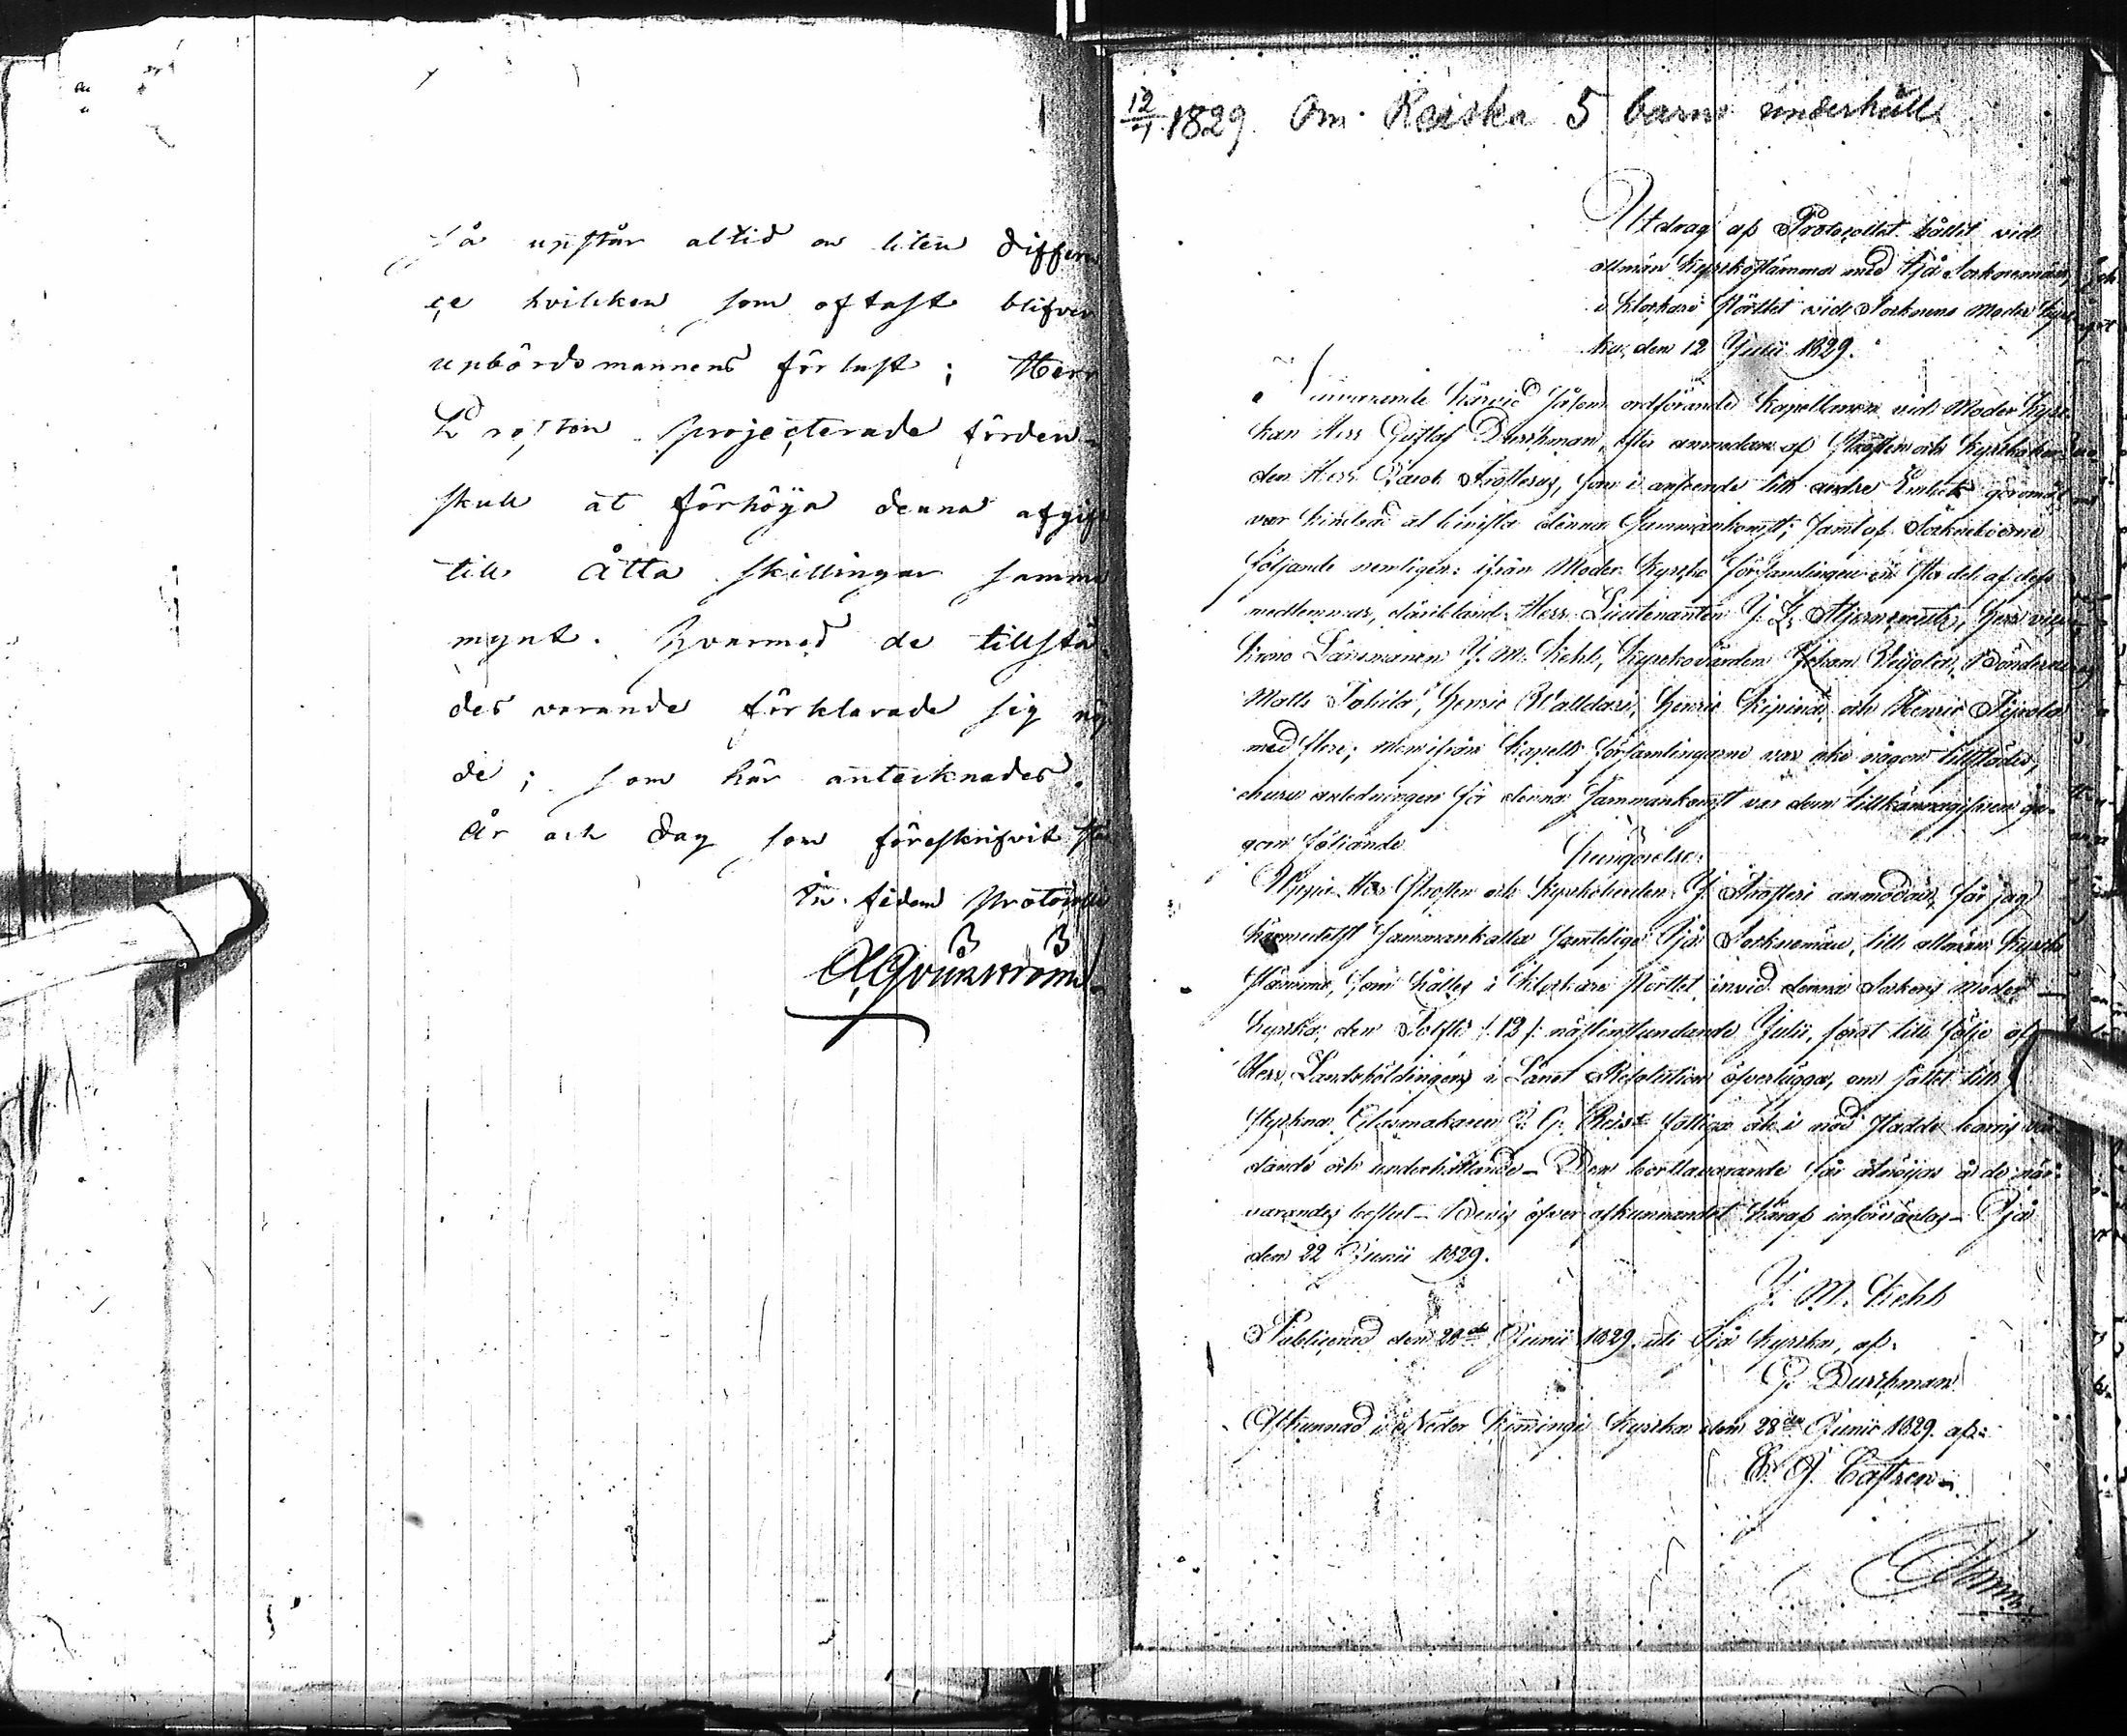 så upstår altid en liten differen
ce hvilcken som oftast blifver
upbördsmannens förlust; Herr
Prosten projecterade förden-
skull at förhöja denna afgift
till Åtta skillingar samma
mynt. Hvarmed de tillstä-
des varande förklarade sig nöj
de; som här antecknades.
År och Dag som föreskrifvit står
In fidem Protocolli
12/7 1829. Om Reiska 5 barns underhåll
Utdrag af Protocollet hållit vid
allmän Kyrkostämma med Ijå Socknemän,
i Klockare Pörttet vid Socknens Moder Kyr-
ka, den 12 Julii 1829.
Närvarande härvid såsom ordförande Kapellanen vid Moder Kyrc-
kan Herr Gustaf Durchman, efter anmodan af Prosten och Kyrkoher-
den Herr Jacob Frosterus, som i anseende till andre Embets göromål
var hindrad at bevista denna Sammankomst; samt af Sockneboerne
följande nemligen: ifrån Moder Kyrko församlingen en stor del af dess
medlemmar, däribland Herr Lieutenanten J. Z. Stjerncreutz, Herr vice
Krono Länsmannen J. M. Kehls, Kyrkovärden Johan Reijola, Bönderne
Matts Tolvila, Henric Walldari, Henric Kipinä, och Henric Sijpola
med flere; men ifrån Kapells församlingarne var icke någon tillstädes,
ehuru anledningen för denna Sammankomst var dem tillkännagifven ge-
gom följande Kungörelse:
Uppå Herr Prosten och Kyrkoherden J. Frosteri anmodan, får jag
härmedelst sammankalla samtelige Ijå Socknemän, till allmän Kyrko
stämma, som hålles i Klockare Pörttet invid denna Sockens Moder
Kyrka, den Tolfte /: 12 /: nästinstundande Julii, för at till följe af
Herr Landshöfdingens i Länet Resolution öfverlägga, om sättet till
styckna Glasmakaren C. G. Reist fattiga och i nöd stadde barns vår-
dande och underhållande_ Den bortavarande får åtnöjas å de när-
varandes beslut_ Bevis öfver afkunnandet häraf införväntas_ Ijå
den 22 Junii 1829.
J. M. Kehls
Publicerad den 28de Junii 1829. uti Ijå Kyrka, af:
G. Durchman
Afkunnad i Neder Kiminge Kyrka den 28de Junii 1829. af:
E. J. Castren_